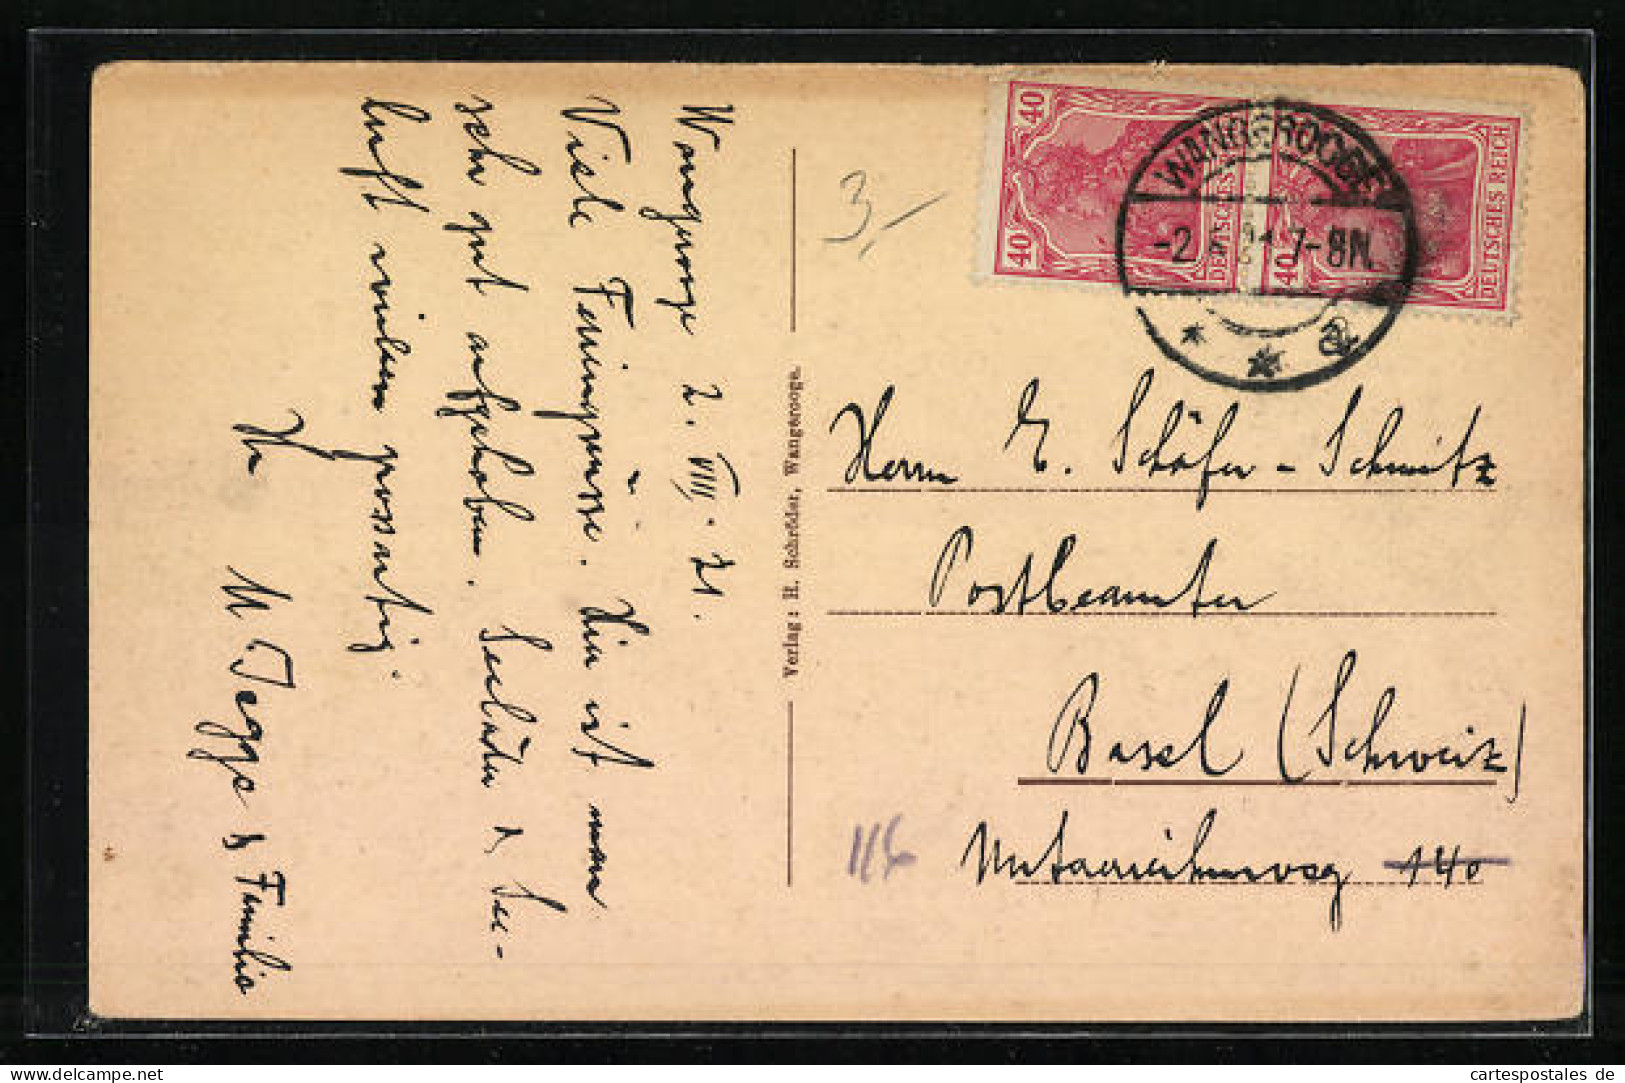 Wangerooge 2. VIII. 21.
Viele Feriengrüsse. Hier ist man
sehr gut aufgehoben. Seebäder & See-
luft wirken grossartig.
Ihr
& Familie
Verlag: H. Schröder, Wangerooge.
3.-
40 40
DEUTSCHES
40
DEUTSCHES REICH
WANGEROOGE
-2. 8. 21. 7-8N.
* * a
Herrn E. Schäfer-Schmitz
Postbeamter
Basel (Schweiz)
140